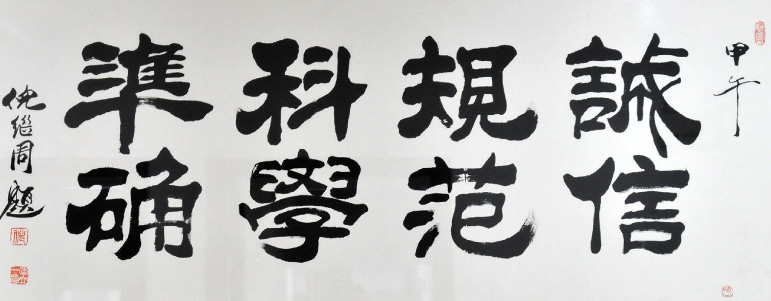 甲午
誠信
規范
科學
準确
倪继周題